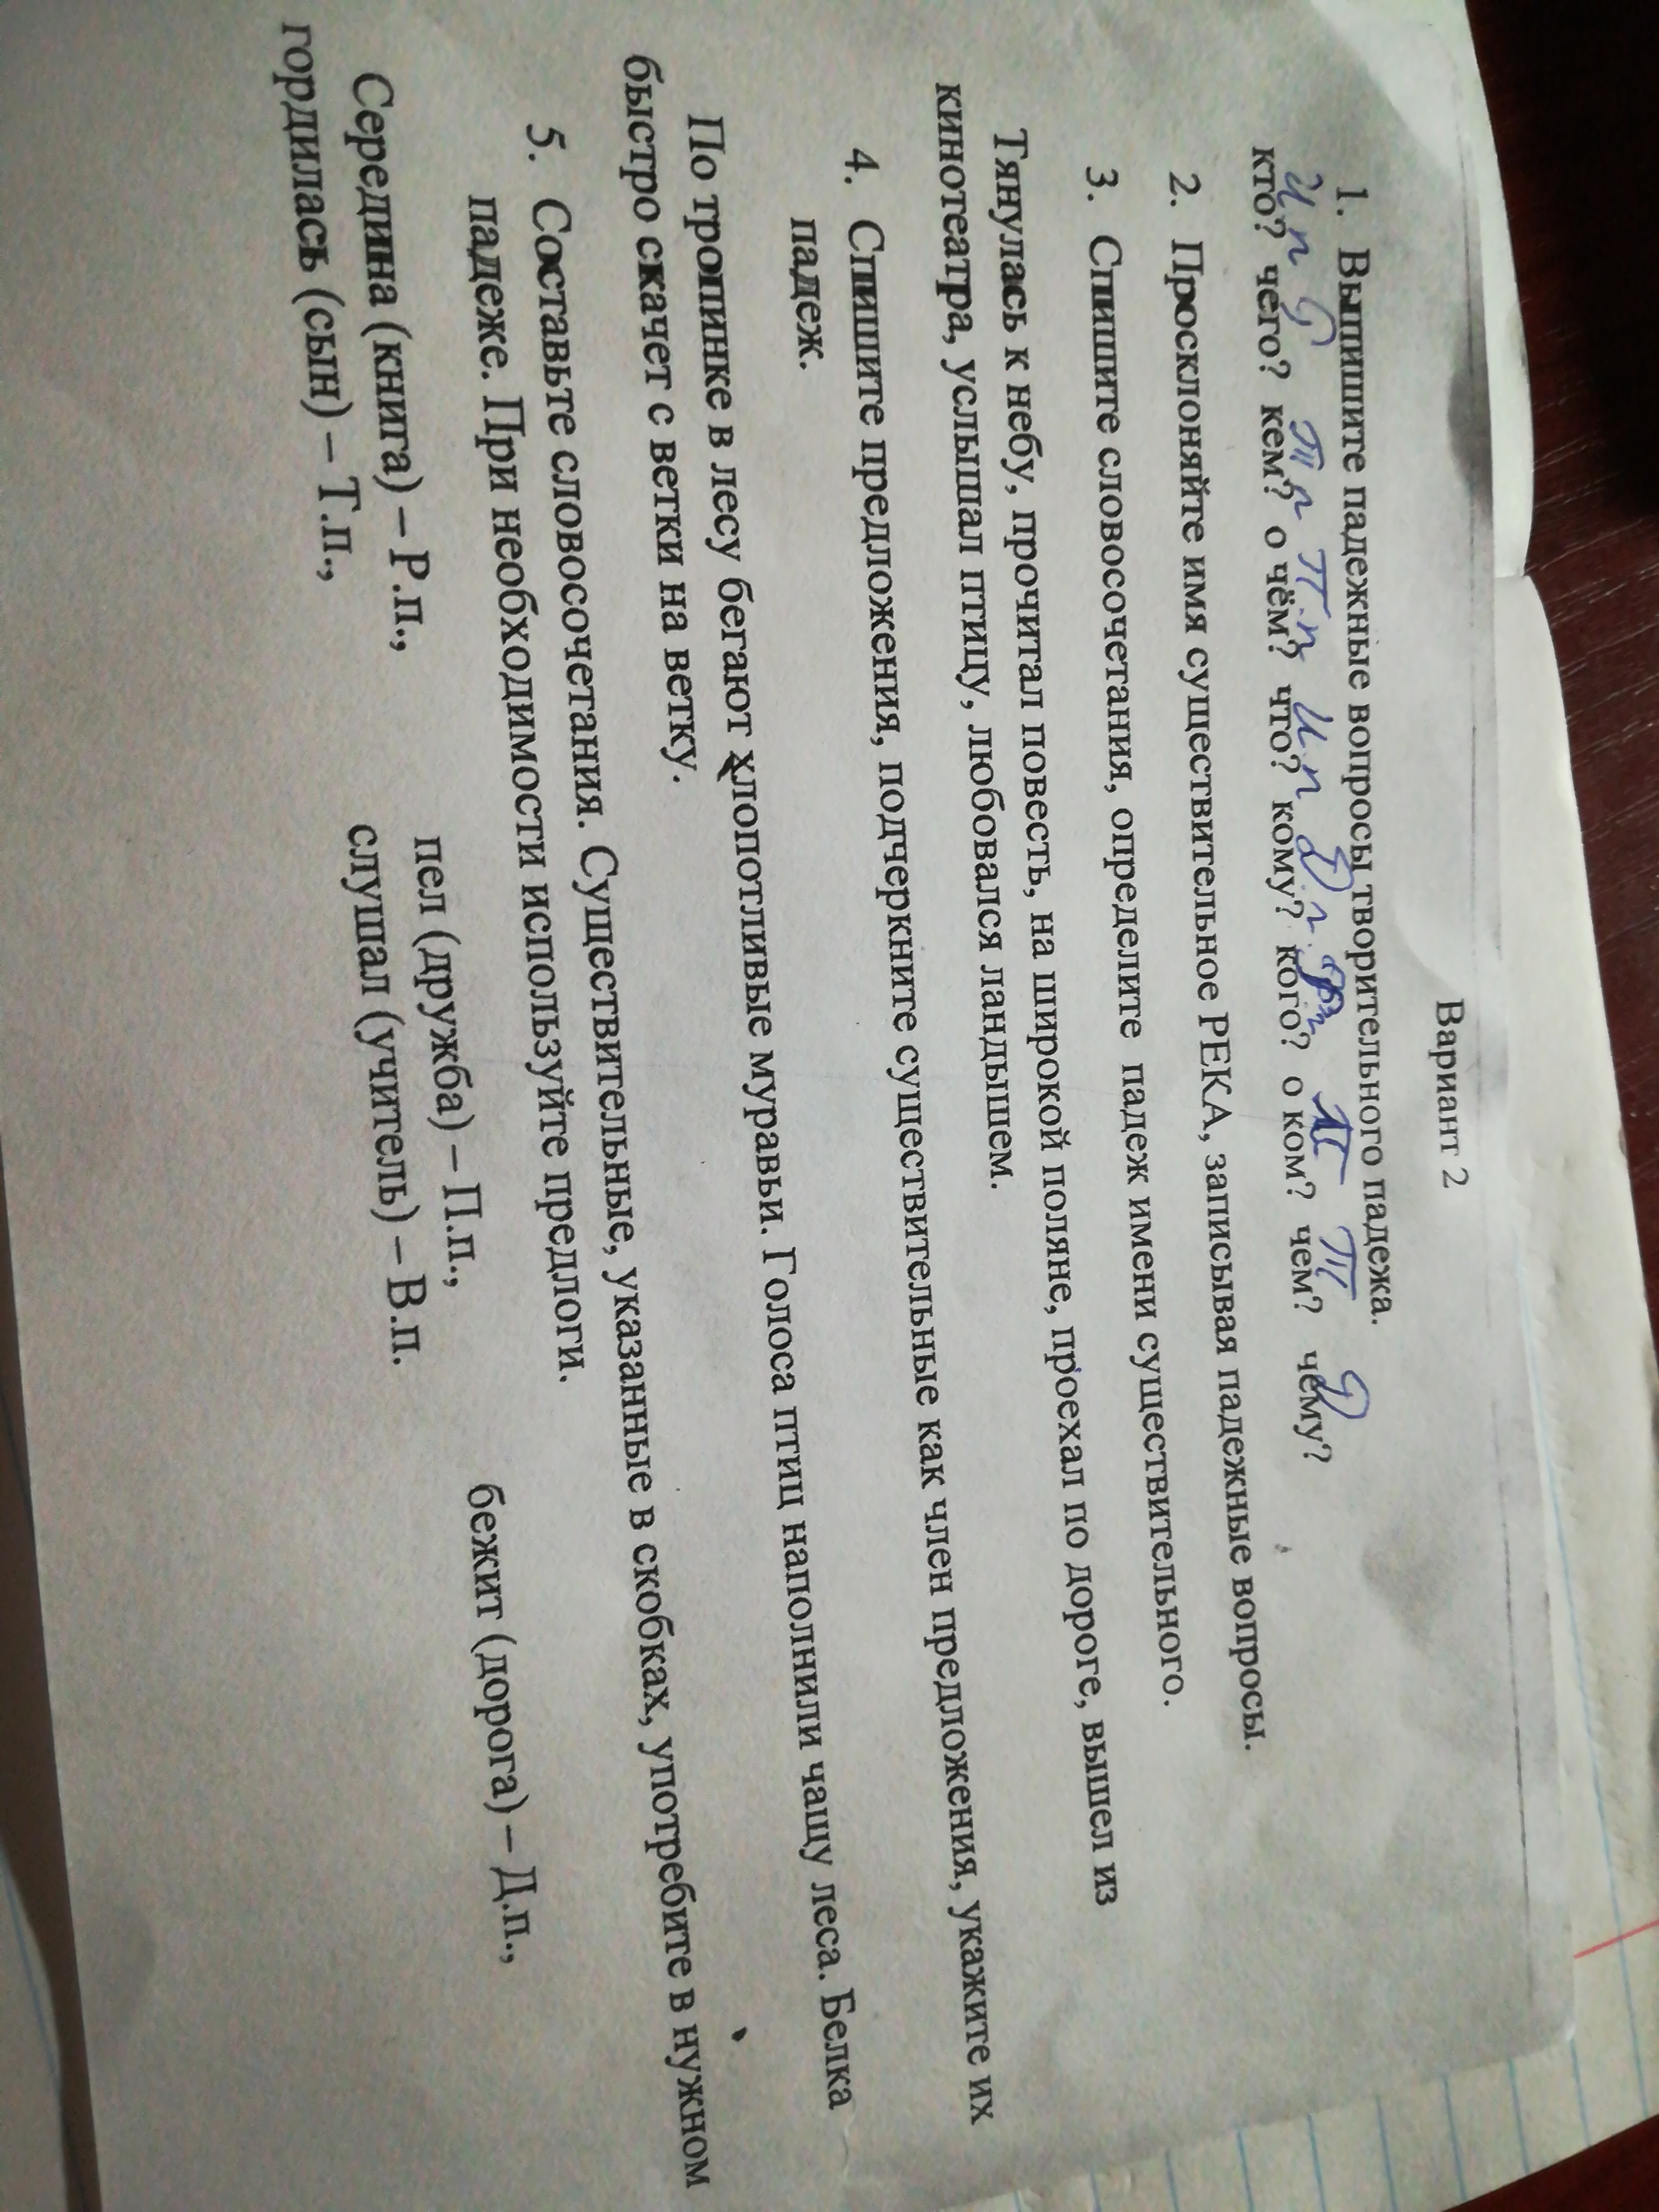 Вариант 2
1. Выпишите падежные вопросы творительного падежа.
И п Т п П. п И п Д п П Т Д
кто? чего? кем? о чём? что? кому? кого? о ком? чем? чему?
2. Просклоняйте имя существительное РЕКА, записывая падежные вопросы.
3. Спишите словосочетания, определите падеж имени существительного.
Тянулась к небу, прочитал повесть, на широкой поляне, проехал по дороге, вышел из
кинотеатра, услышал птицу, любовался ландышем.
4. Спишите предложения, подчеркните существительные как член предложения, укажите их
падеж.
По тропинке в лесу бегают хлопотливые муравьи. Голоса птиц наполнили чащу леса. Белка
быстро скачет с ветки на ветку.
5. Составьте словосочетания. Существительные, указанные в скобках, употребите в нужном
падеже. При необходимости используйте предлоги.
Середина (книга) – Р.п., пел (дружба) – П.п., бежит (дорога) – Д.п.,
гордилась (сын) – Т.п., слушал (учитель) – В.п.